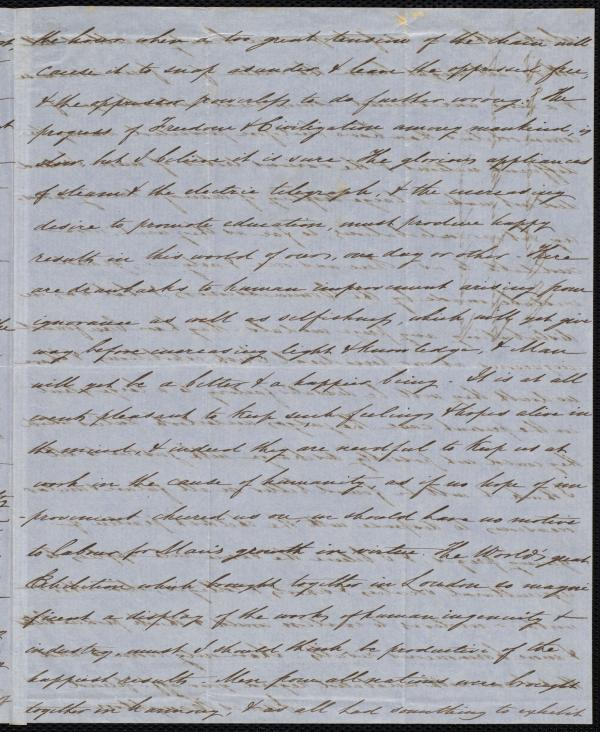 the hour when a too great tension of the chain will
cause it to snap asunder & leave the oppressed free,
& the oppressor powerless to do further wrong. The
progress of Freedom & Civilization among mankind, is
slow, but I believe it is sure. The glorious appliances
of steam & the electric telegraph & the increasing
desire to promote education, must produce happy
results in this world of ours, one day or other. There
are drawbacks to human improvement arising from
ignorance as well as selfishness, which will yet give
way before increasing light & knowledge, & Man
will yet be a better & a happier being. It is at all
events pleasant to keep such feelings & hopes alive in
the mind, & indeed they are needful to keep us at
work in the cause of humanity, as if no hope of im
-provement, cheered us on, we should have no motive
to labour for Man's growth in virtue. The World's great
Exhibition which brought together in London so magni
ficent a display of the works of human ingenuity &
industry, must I should think, be productive of the
happiest results - Men from all nations were brought
together in harmony, & as all had something to exhibit